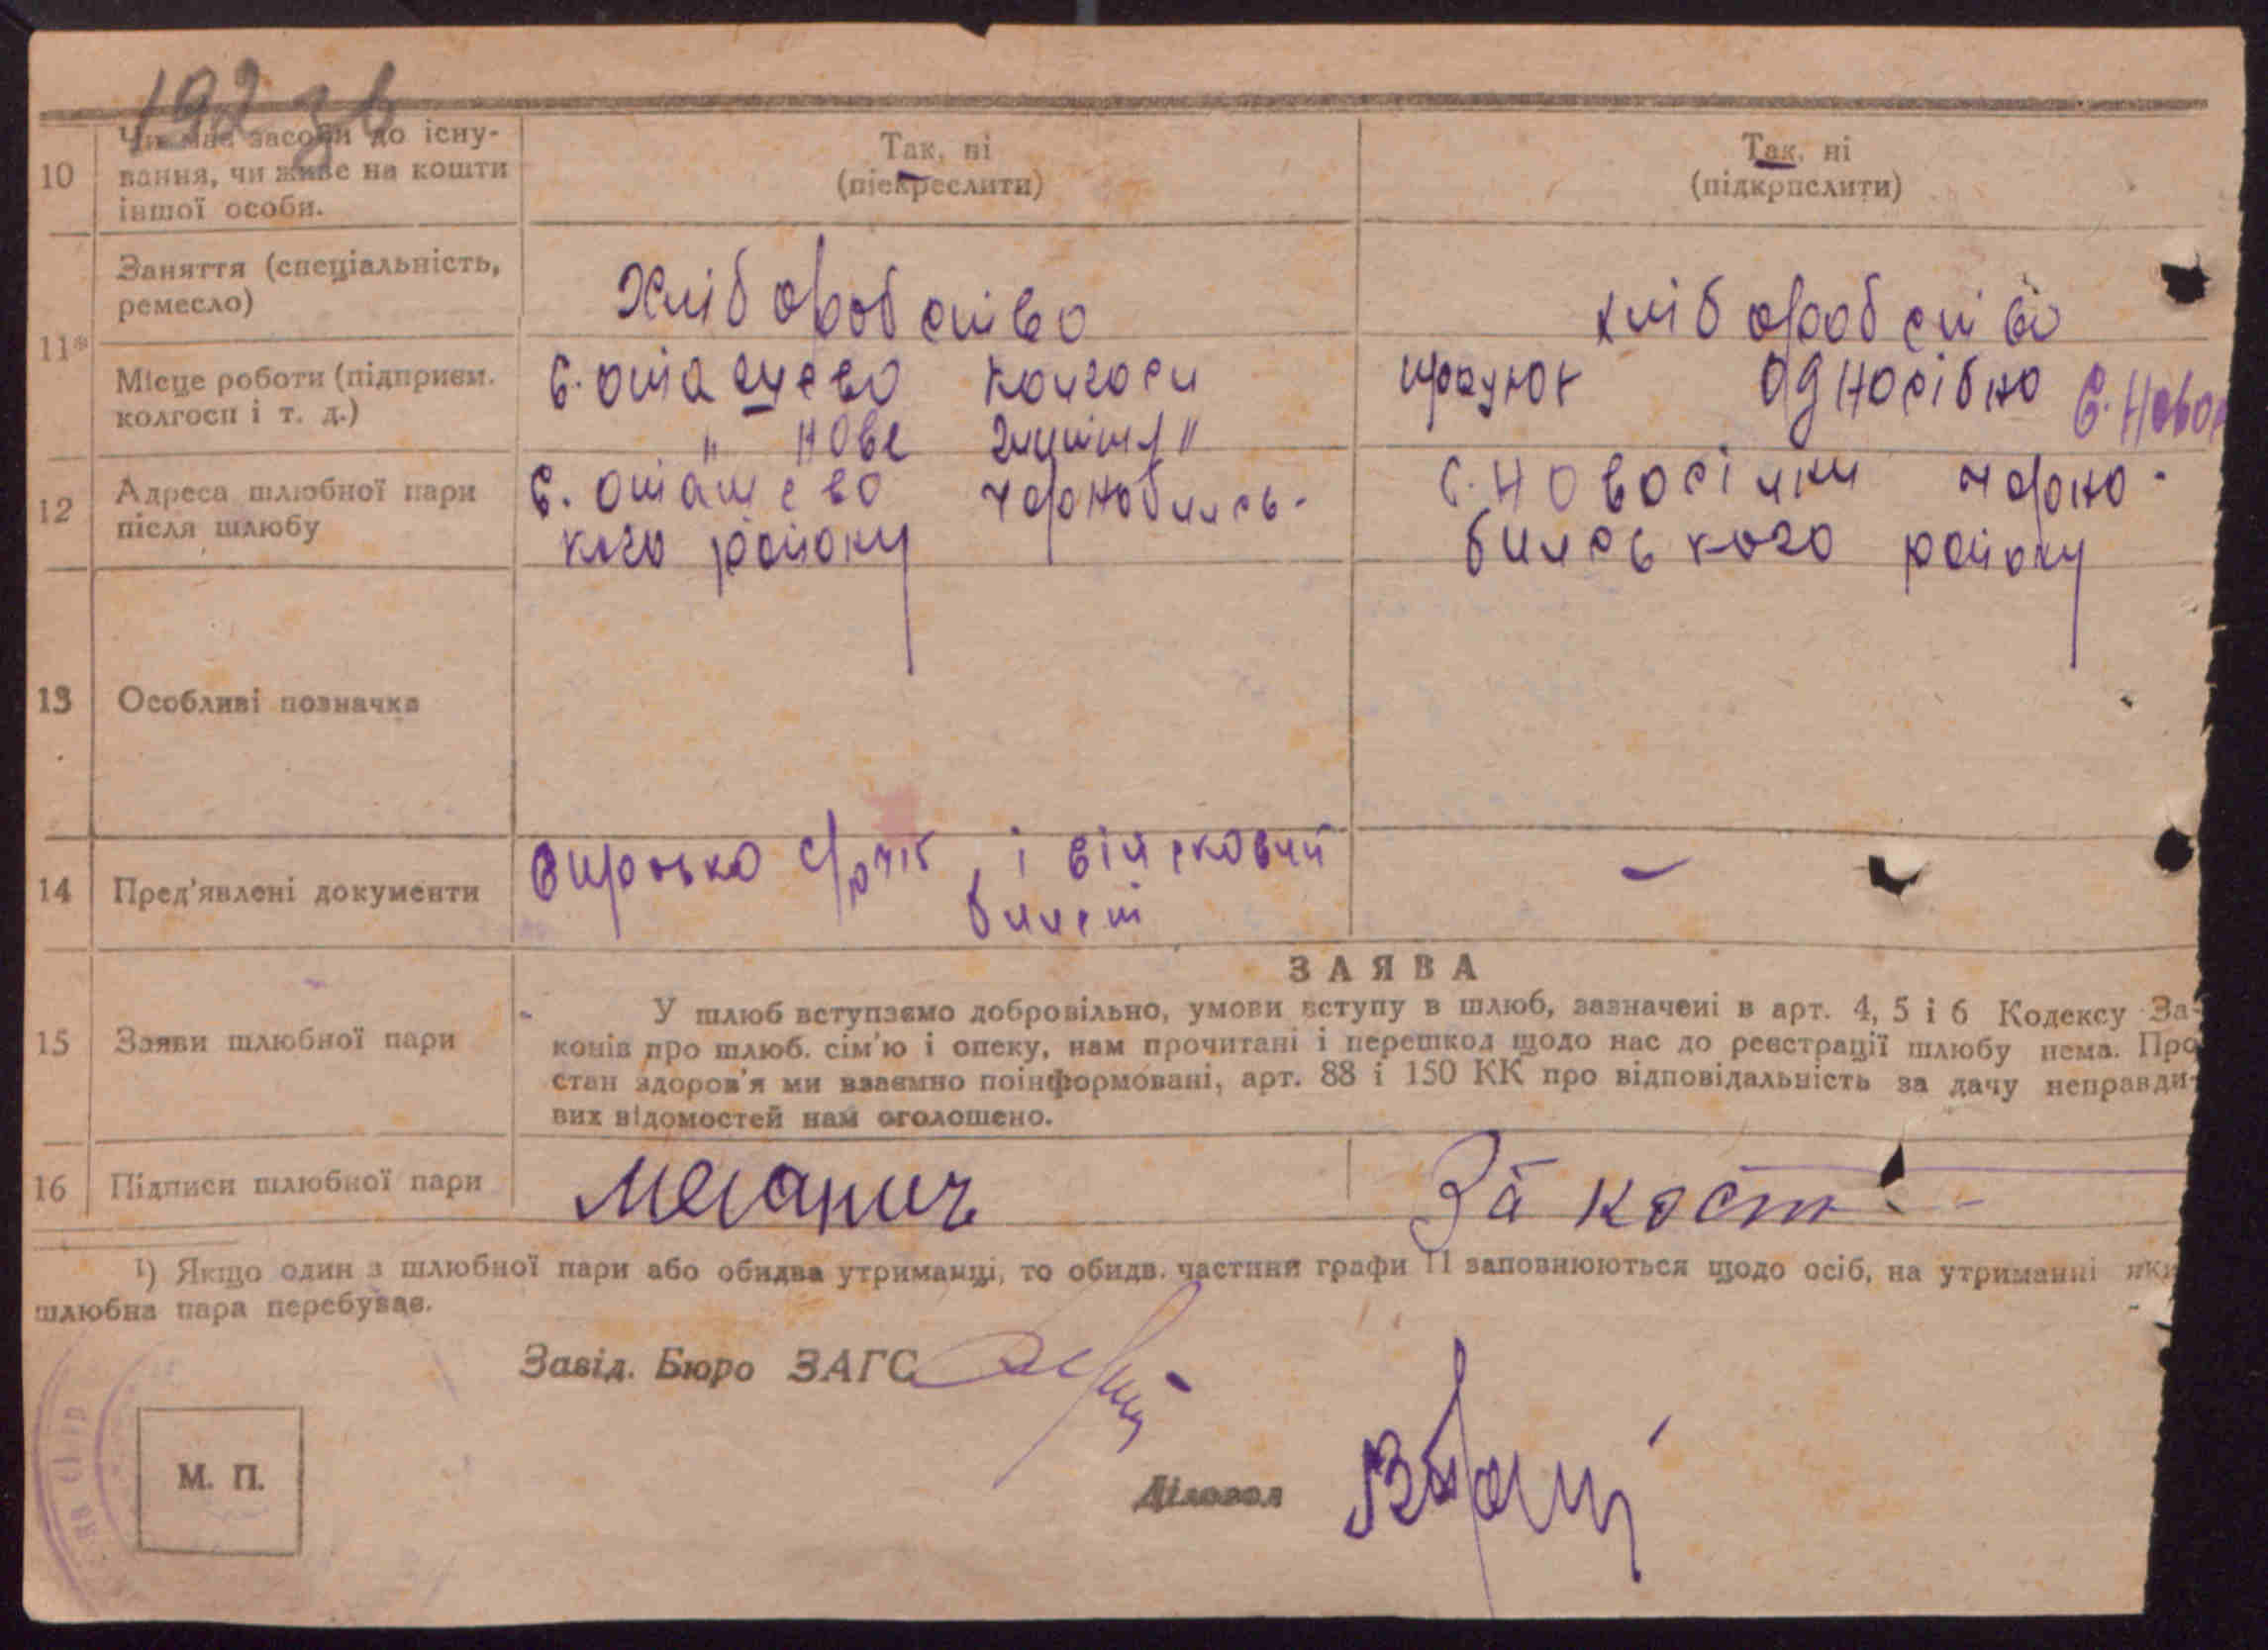 192 зв
10 Чи має засоби до існу-
вання, чи живе на кошти
іншої особи.
Так, ні
(піекреслити)
Так, ні
(підкрпслити)
11* Заняття (спеціальність,
ремесло)
Хліборобство
хліборобство
Місце роботи (підприєм.
колгосп і т. д.)
С. Оташево колгосп
" Нове життя "
працює односібно С. Новос
12 Адреса шлюбної пари
після шлюбу
С. Оташево Чорнобильсь-
кого району
С. Новосілки Чорно-
бильського району
13 Особливі позначки
14 Пред'явлені документи
і військовий
билет
–
15 Заяви шлюбної пари
ЗАЯВА
У шлюб вступаємо добровільно, умови вступу в шлюб, зазначені в арт. 4, 5 і 6 Кодексу За-
конів про шлюб. сім'ю і опеку, нам прочитані і перешкод щодо нас до реєстрації шлюбу нема. Про
стан здоров'я ми взаємно поінформовані, арт. 88 і 150 КК про відповідальність за дачу неправди-
вих відомостей нам оголошено.
16 Підписи шлюбної пари
За Кост
1) Якщо один з шлюбної пари або обидва утриманці, то обидв. частини графи 11 заповнюються щодо осіб, на утриманні яки
шлюбна пара перебуває.
Завід. Бюро ЗАГС
Діловод
М. П.